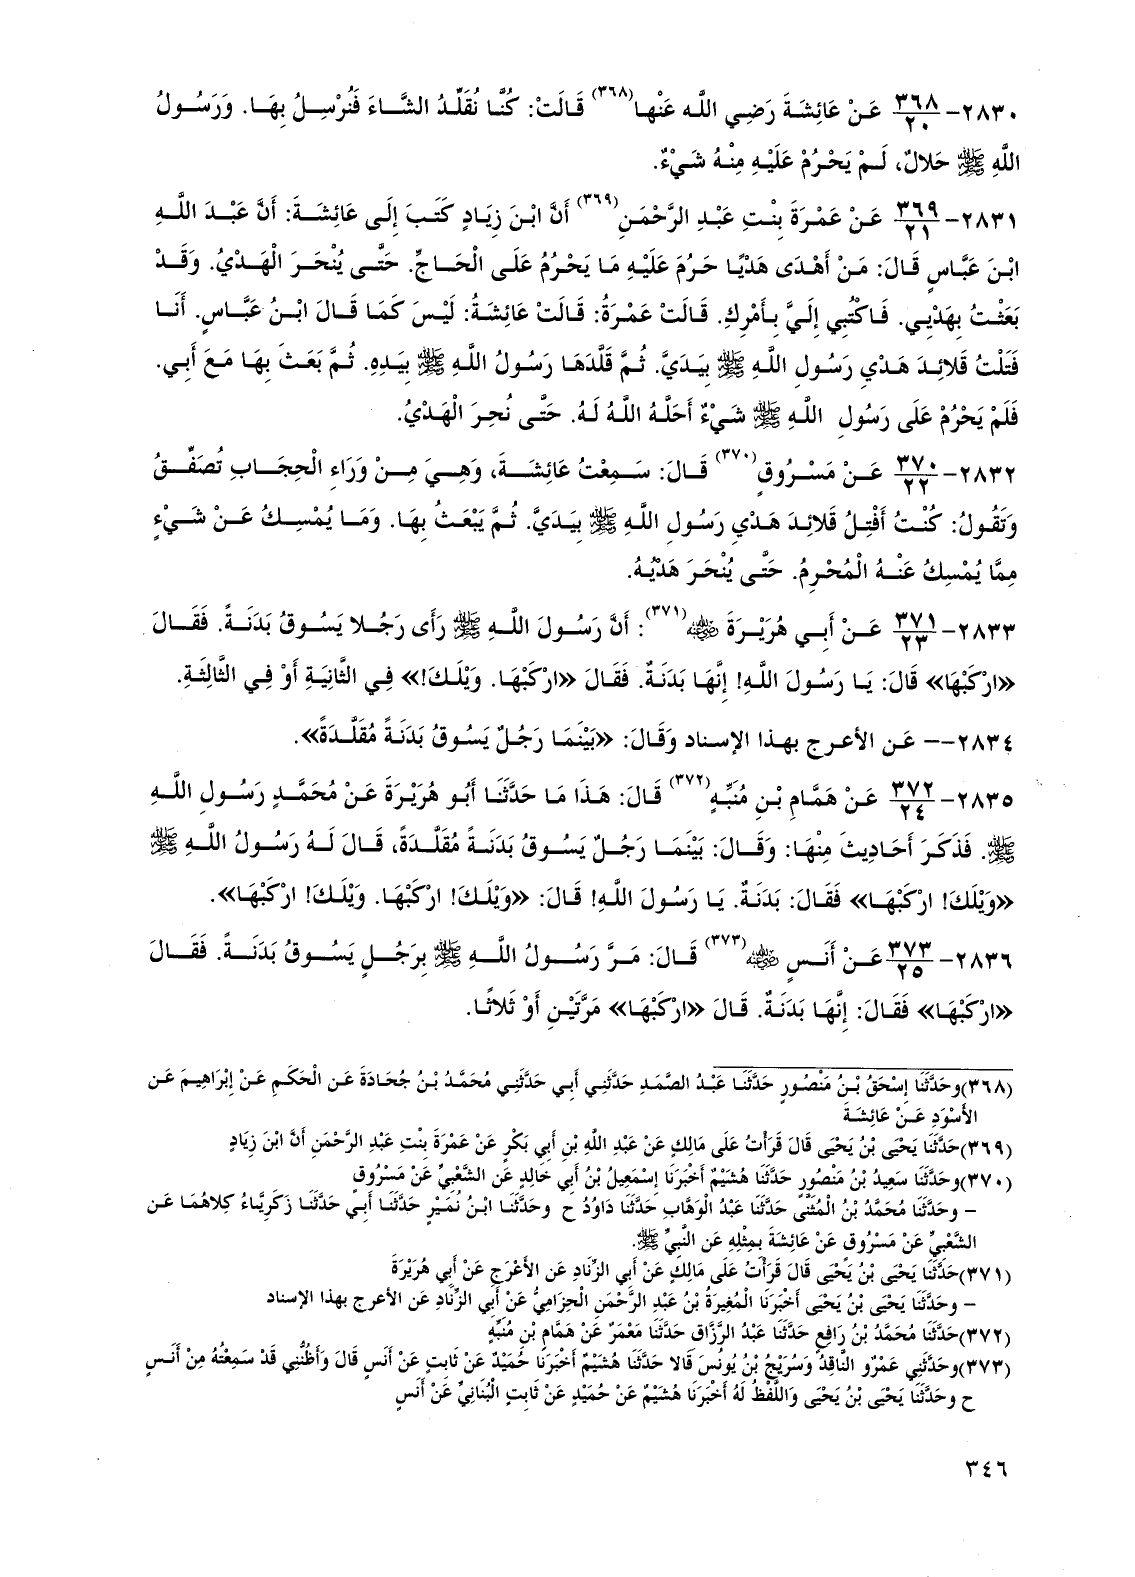 ٢٨٣٠- ٣٦٨/٢٠ عَنْ عَائِشَةَ رَضِي اللَّه عَنْها(٣٦٨) قَالَتْ: كُنَّا نُقَلِّدُ الشَّاءَ فَنُرْسِلُ بِهَا. وَرَسُولُ
اللَّهِ ﷺ حَلالٌ، لَمْ يَحْرُمْ عَلَيْهِ مِنْهُ شَيْءٌ.
٢٨٣١- ٣٦٩/٢١ عَنْ عَمْرَةَ بِنْتِ عَبْدِ الرَّحْمَنِ(٣٦٩) أَنَّ ابْنَ زِيَادٍ كَتَبَ إِلَى عَائِشَةَ: أَنَّ عَبْدَ اللَّهِ
ابْنَ عَبَّاسٍ قَالَ: مَنْ أَهْدَى هَدْيًا حَرُمَ عَلَيْهِ مَا يَحْرُمُ عَلَى الْحَاجِّ. حَتَّى يُنْحَرَ الْهَدْيُ. وَقَدْ
بَعَثْتُ بِهَدْيِي. فَاكْتُبِي إِلَيَّ بِأَمْرِكِ. قَالَتْ عَمْرَةُ: قَالَتْ عَائِشَةُ: لَيْسَ كَمَا قَالَ ابْنُ عَبَّاسٍ. أَنَا
فَتَلْتُ قَلائِدَ هَدْيِ رَسُولِ اللَّهِ ﷺ بِيَدَيَّ. ثُمَّ قَلَّدَهَا رَسُولُ اللَّهِ ﷺ بِيَدِهِ. ثُمَّ بَعَثَ بِهَا مَعَ أَبِي.
فَلَمْ يَحْرُمْ عَلَى رَسُولِ اللَّهِ ﷺ شَيْءٌ أَحَلَّهُ اللَّهُ لَهُ. حَتَّى نُحِرَ الْهَدْيُ.
٢٨٣٢- ٣٧٠/٢٢ عَنْ مَسْرُوقٍ(٣٧٠) قَالَ: سَمِعْتُ عَائِشَةَ، وَهِيَ مِنْ وَرَاءِ الْحِجَابِ تُصَفِّقُ
وَتَقُولُ: كُنْتُ أَفْتِلُ قَلائِدَ هَدْيِ رَسُولِ اللَّهِ ﷺ بِيَدَيَّ. ثُمَّ يَبْعَثُ بِهَا. وَمَا يُمْسِكُ عَنْ شَيْءٍ
مِمَّا يُمْسِكُ عَنْهُ الْمُحْرِمُ. حَتَّى يُنْحَرَ هَدْيُهُ.
٢٨٣٣- ٣٧١/٢٣ عَنْ أَبِي هُرَيْرَةَ ﷺ(٣٧١): أَنَّ رَسُولَ اللَّهِ ﷺ رَأَى رَجُلا يَسُوقُ بَدَنَةً. فَقَالَ
«ارْكَبْهَا» قَالَ: يَا رَسُولَ اللَّهِ! إِنَّهَا بَدَنَةٌ. فَقَالَ «ارْكَبْهَا. وَيْلَكَ!» فِي الثَّانِيَةِ أَوْ فِي الثَّالِثَةِ.
٢٨٣٤-- عَنِ الأعرج بهذا الإسناد وَقَالَ: «بَيْنَمَا رَجُلٌ يَسُوقُ بَدَنَةً مُقَلَّدَةً».
٢٨٣٥- ٣٧٢/٢٤ عَنْ هَمَّامِ بْنِ مُنَبِّهٍ(٣٧٢) قَالَ: هَذَا مَا حَدَّثَنَا أَبُو هُرَيْرَةَ عَنْ مُحَمَّدٍ رَسُولِ اللَّهِ
ﷺ. فَذَكَرَ أَحَادِيثَ مِنْهَا: وَقَالَ: بَيْنَمَا رَجُلٌ يَسُوقُ بَدَنَةً مُقَلَّدَةً، قَالَ لَهُ رَسُولُ اللَّهِ ﷺ
«وَيْلَكَ! ارْكَبْهَا» فَقَالَ: بَدَنَةٌ. يَا رَسُولَ اللَّهِ! قَالَ: «وَيْلَكَ! ارْكَبْهَا. وَيْلَكَ! ارْكَبْهَا».
٢٨٣٦- ٣٧٣/٢٥ عَنْ أَنَسٍ ﷺ(٣٧٣) قَالَ: مَرَّ رَسُولُ اللَّهِ ﷺ بِرَجُلٍ يَسُوقُ بَدَنَةً. فَقَالَ
«ارْكَبْهَا» فَقَالَ: إِنَّهَا بَدَنَةٌ. قَالَ «ارْكَبْهَا» مَرَّتَيْنِ أَوْ ثَلاثًا.
(٣٦٨)وحَدَّثَنَا إِسْحَقُ بْنُ مَنْصُورٍ حَدَّثَنَا عَبْدُ الصَّمَدِ حَدَّثَنِي أَبِي حَدَّثَنِي مُحَمَّدُ بْنُ جُحَادَةَ عَنِ الْحَكَمِ عَنْ إِبْرَاهِيمَ عَنِ
الأَسْوَدِ عَنْ عَائِشَةَ
(٣٦٩)حَدَّثَنَا يَحْيَى بْنُ يَحْيَى قَالَ قَرَأْتُ عَلَى مَالِكٍ عَنْ عَبْدِ اللَّهِ بْنِ أَبِي بَكْرٍ عَنْ عَمْرَةَ بِنْتِ عَبْدِ الرَّحْمَنِ أَنَّ ابْنَ زِيَادٍ
(٣٧٠)وحَدَّثَنَا سَعِيدُ بْنُ مَنْصُورٍ حَدَّثَنَا هُشَيْمٌ أَخْبَرَنَا إِسْمَعِيلُ بْنُ أَبِي خَالِدٍ عَنِ الشَّعْبِيِّ عَنْ مَسْرُوقٍ
– وحَدَّثَنَا مُحَمَّدُ بْنُ الْمُثَنَّى حَدَّثَنَا عَبْدُ الْوَهَّابِ حَدَّثَنَا دَاوُدُ ح وحَدَّثَنَا ابْنُ نُمَيْرٍ حَدَّثَنَا أَبِي حَدَّثَنَا زَكَرِيَّاءُ كِلاهُمَا عَنِ
الشَّعْبِيِّ عَنْ مَسْرُوقٍ عَنْ عَائِشَةَ بِمِثْلِهِ عَنِ النَّبِيِّ ﷺ.
(٣٧١)حَدَّثَنَا يَحْيَى بْنُ يَحْيَى قَالَ قَرَأْتُ عَلَى مَالِكٍ عَنْ أَبِي الزِّنَادِ عَنِ الأَعْرَجِ عَنْ أَبِي هُرَيْرَةَ
– وحَدَّثَنَا يَحْيَى بْنُ يَحْيَى أَخْبَرَنَا الْمُغِيرَةُ بْنُ عَبْدِ الرَّحْمَنِ الْحِزَامِيُّ عَنْ أَبِي الزِّنَادِ عَنِ الأعرج بهذا الإسناد
(٣٧٢)حَدَّثَنَا مُحَمَّدُ بْنُ رَافِعٍ حَدَّثَنَا عَبْدُ الرَّزَّاقِ حَدَّثَنَا مَعْمَرٌ عَنْ هَمَّامِ بْنِ مُنَبِّهٍ
(٣٧٣)وحَدَّثَنِي عَمْرٌو النَّاقِدُ وَسُرَيْجُ بْنُ يُونُسَ قَالا حَدَّثَنَا هُشَيْمٌ أَخْبَرَنَا حُمَيْدٌ عَنْ ثَابِتٍ عَنْ أَنَسٍ قَالَ وَأَظُنُّنِي قَدْ سَمِعْتُهُ مِنْ أَنَسٍ
ح وحَدَّثَنَا يَحْيَى بْنُ يَحْيَى وَاللَّفْظُ لَهُ أَخْبَرَنَا هُشَيْمٌ عَنْ حُمَيْدٍ عَنْ ثَابِتٍ الْبُنَانِيِّ عَنْ أَنَسٍ
٣٤٦